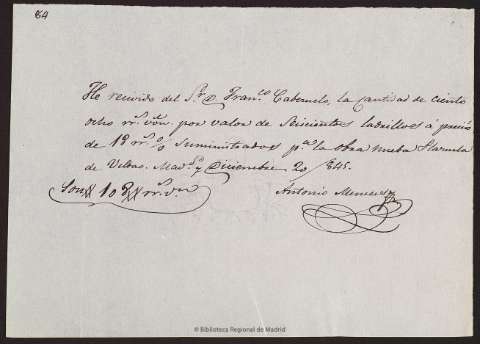 84
He recivido del Sr. D. Franco. Cabezuelo, la cantidad de ciento
ocho rrs. von. por valor de Seiscientos ladrillos á precio
de 18 rrs. % Suministrados pa. la obra nueba
de Madd. y Diciembre 20/845.
Son 108 rrs. vn
Antonio
© Biblioteca Regional de Madrid